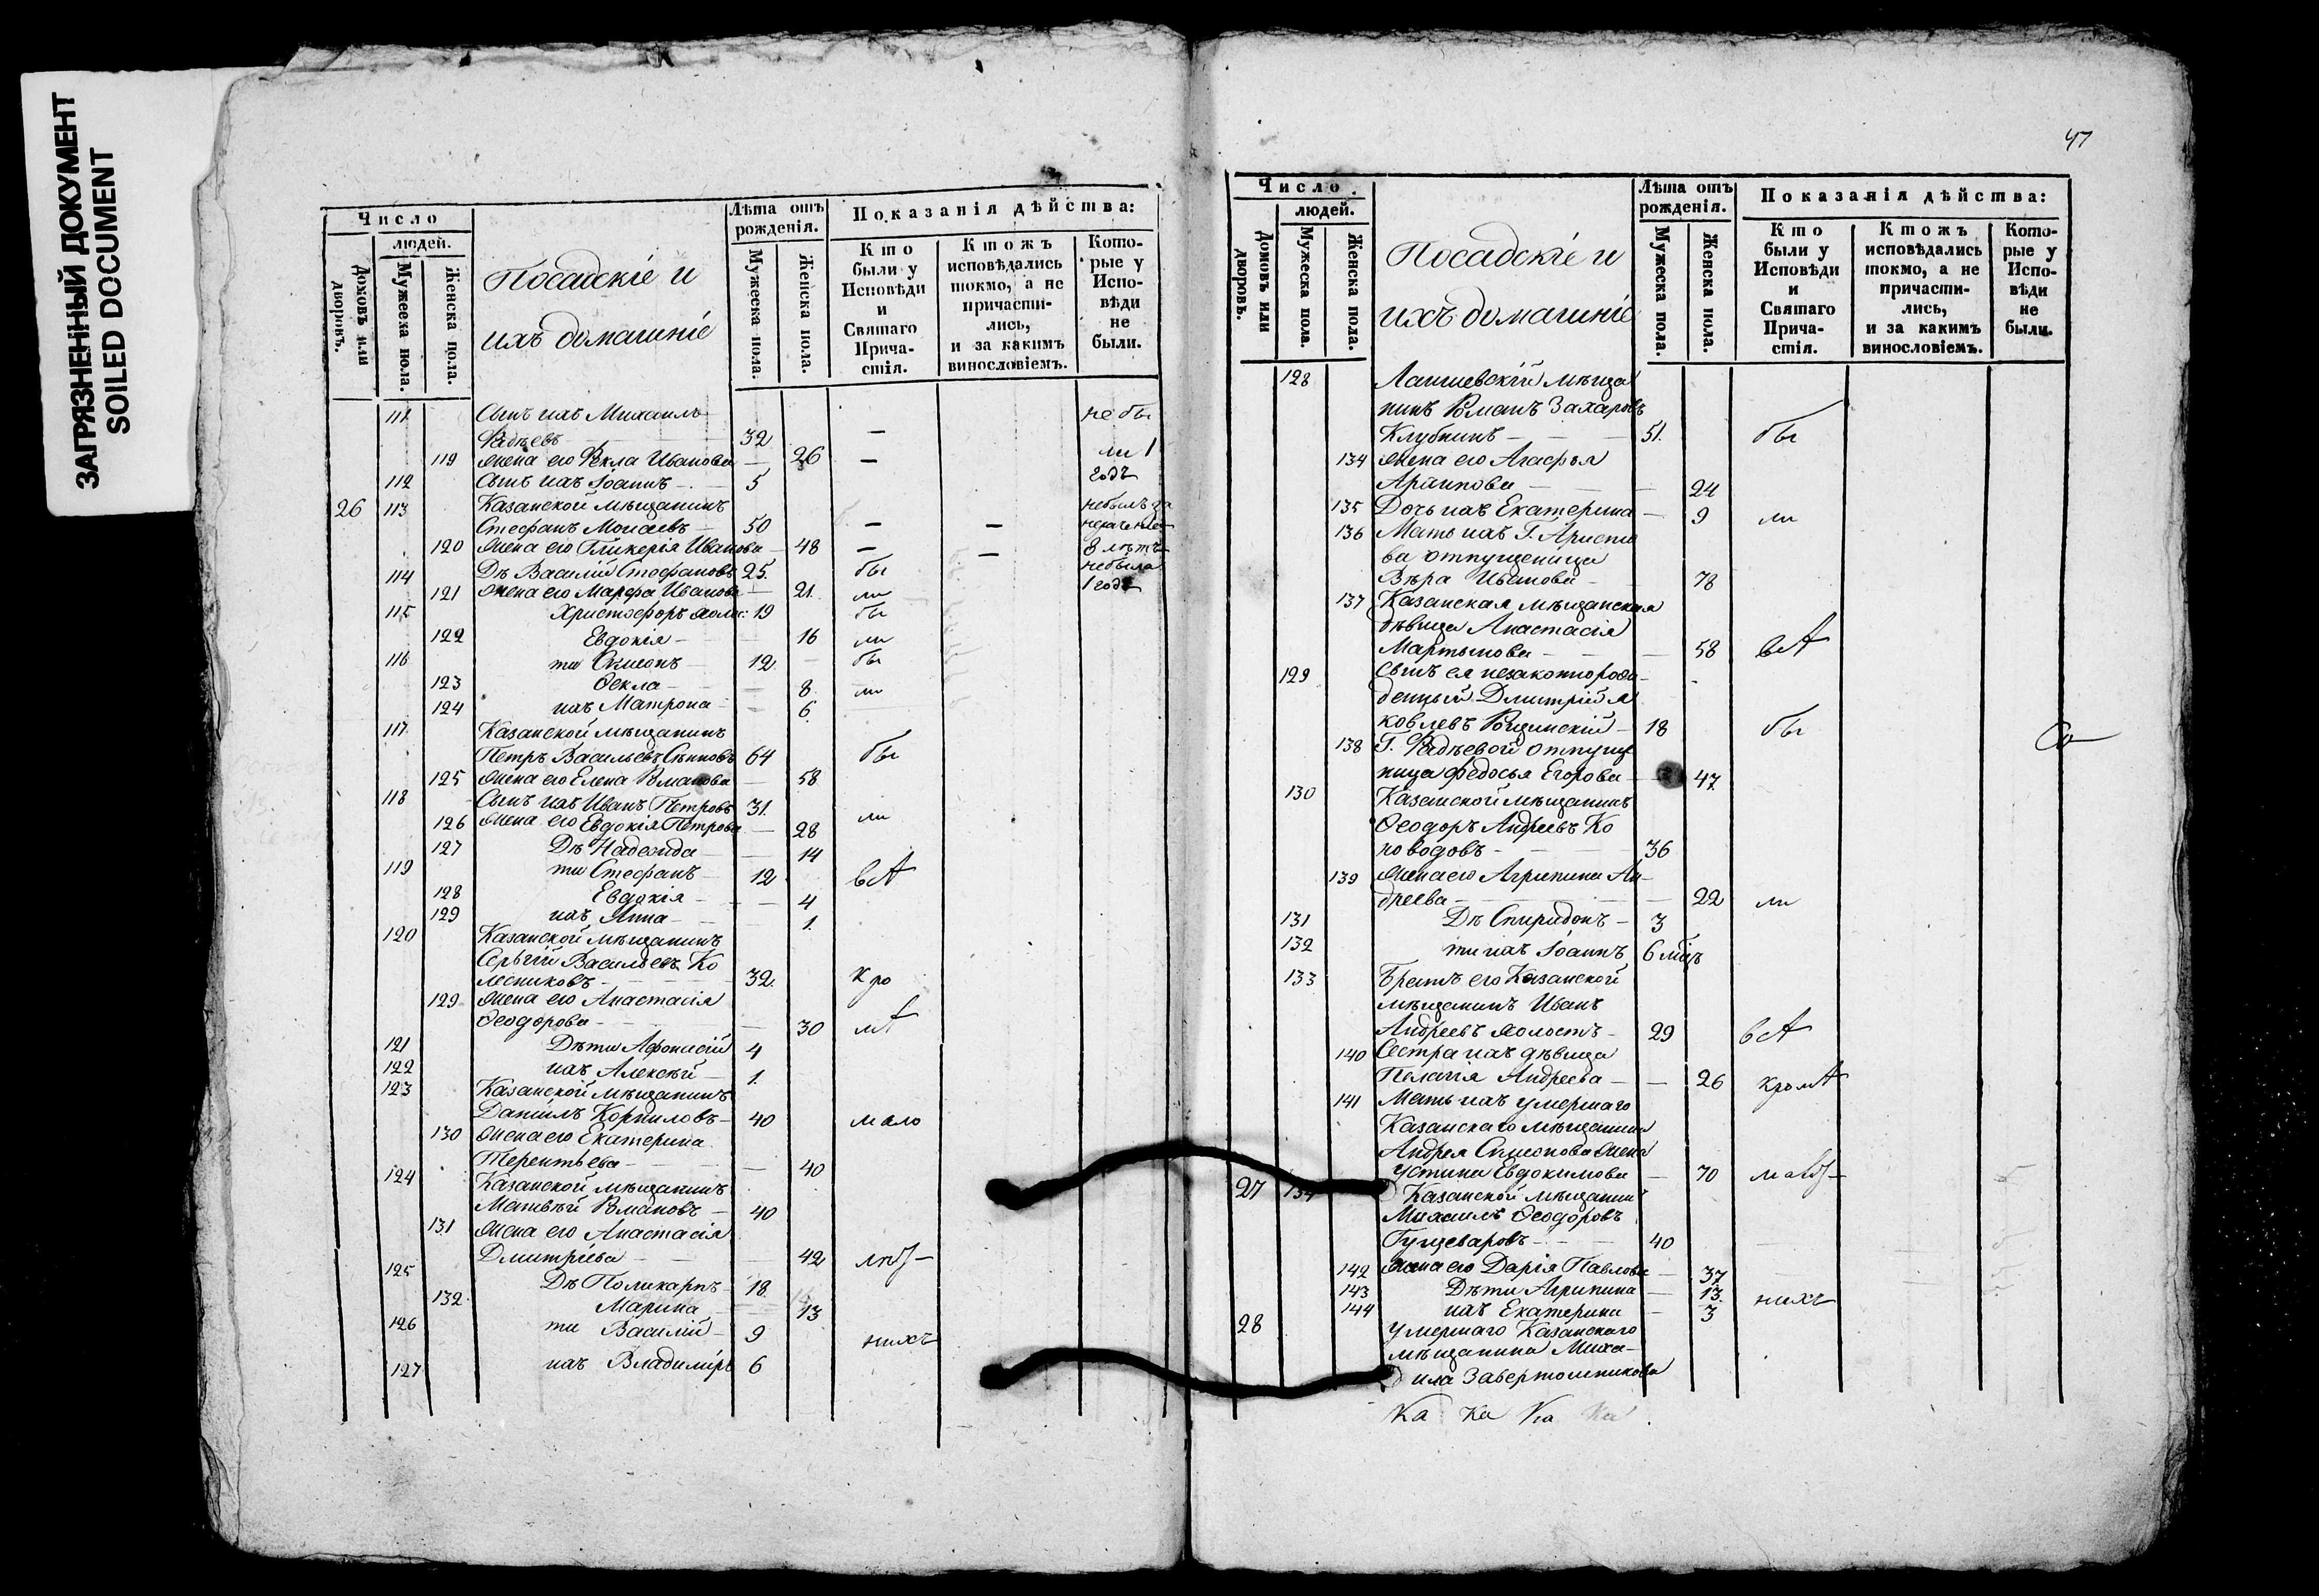 ЗАГРЯЗНЕННЫЙ ДОКУМЕНТ
SOILED DOCUMENT
Число
людей.
Домовъ или дворовъ.
Мужеска пола.
Женска пола.
Посадскіе и
ихъ домашніе
Лѣта отъ рожденія.
Мужеска пола.
Женска пола.
Показанія дѣйства:
Кто были у Исповѣди и Святаго Прича-стія.
Ктожъ исповѣдались токмо, а не причасти-лись, и за какимъ винословіемъ.
Кото-рые у Испо-вѣди не были.
111 Сынъ ихъ Михаилъ не бы
Фадѣевъ 32 —
119 жена его Фекла Иванова — 26 — ли 1
112 Сынъ ихъ Іоаннъ — 5 годъ
26 113 Казанской мѣщанинъ небылъ за
Стефанъ Моисаевъ — 50 — —
120 жена его Гликерія Иванова — 48 — — 8 лѣтъ
114 Дѣ Василій Стефановъ 25. бы небыла
121 жена его Марфа Иванова — 21. ли 1 годъ
115 Христофоръ холос: 19 бы
122 Евдокія — 16 ли
116 ти Симеонъ 12 — бы
123 Ѳекла — 8 ли
124 ихъ Матрона — 6
117 Казанской мѣщанинъ
Петръ Васильевъ 64 бы
125 жена его Елена Романова — 58
118 Сынъ ихъ Иванъ Петровъ 31.
126 жена его Евдокія Петрова — 28 ли
127 Дѣ Надежда — 14
119 ти Стефанъ — 12 всѣ
128 Евдокія — 4
129 ихъ Анна — 1.
120 Казанской мѣщанинъ
Сергій Васильевъ Ко
лесниковъ — 32. кро
129 жена его Анастасія
Ѳеодорова — 30 мѣ
121 Дѣти Афонасій 4
122 ихъ Алексѣй — 1.
123 Казанской мѣщанинъ
Даніилъ Корниловъ — 40 мало
130 жена его Екатерина
Терентьева — 40
124 Казанской мѣщанинъ
Матвѣй Романовъ — 40
131 жена его Анастасія
Дмитріева — 42 лѣт
125 Дѣ Поликарпъ — 18
132 Марина — 13
126 ти Василій — 9 нихъ
127 ихъ Владиміръ 6
47
Число
людей.
Домовъ или дворовъ.
Мужеска пола.
Женска пола.
Посадскіе и
ихъ домашніе
Лѣта отъ рожденія.
Мужеска пола.
Женска пола.
Показанія дѣйства:
Кто были у Исповѣди и Святаго Прича-стія.
Ктожъ исповѣдались токмо, а не причасти-лись, и за какимъ винословіемъ.
Кото-рые у Испо-вѣди не были.
128 Лаишевскій мѣща
нинъ Романъ Захаровъ
Клубнинъ — 51. бы
134 жена его Агафья
Архипова — 24
135 Дочь ихъ Екатерина — 9 ли
136 Мать ихъ Г. Аристо
ва отпущеница
Вѣра Иванова — 78
137 Казанская мѣщанская
дѣвица Анастасія
Мартынова — 58 всѣ
129 сынъ ея незаконнорож
денный Дмитрій Я
ковлевъ — 18 бы
138 Г. Фадѣевой отпущ
ница Федосья Егорова — 47
130 Казанской мѣщанинъ
Ѳеодоръ Андреевъ Ко
новодовъ — 36
139 жена его Агрипина Ан
дреева — 22 ли
131 Дѣ Спиридонъ — 3
132 ти ихъ Іоаннъ 6 мѣц
133 Братъ его Казанской
мѣщанинъ Иванъ
Андреевъ холостъ — 29 всѣ
140 Сестра ихъ дѣвица
Пелагія Андреева — 26 кромѣ
141 Мать ихъ умершаго
Казанскаго мѣщанина
Андрея Симеонова жена
Устина Евдокимова — 70
27 134 Казанской мѣщанинъ
Михаилъ Ѳеодоровъ
40
142 жена его Дарія Павлова — 37
143 Дѣти Агрипина — 13. нихъ
144 ихъ Екатерина — 3
28 умершаго Казанскаго
мѣщанина Миха-
ила Завертошникова
Ка Ка Ка Ка